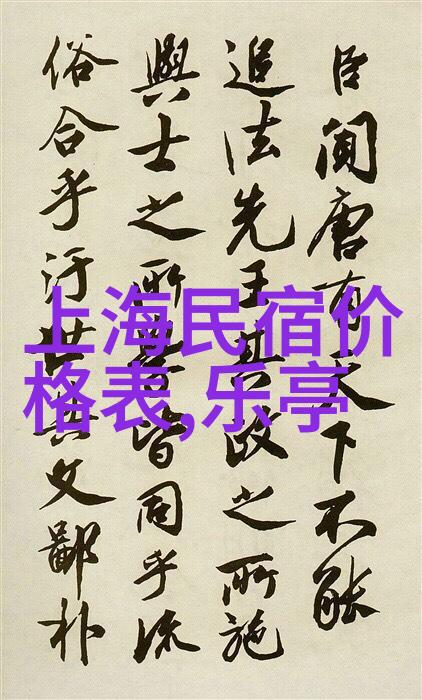 臣聞唐有天下不能
追法先王其政之所施
與士之所學皆同乎流
俗合乎汙世其文鄙朴
上海民宿价
格表,乐亭